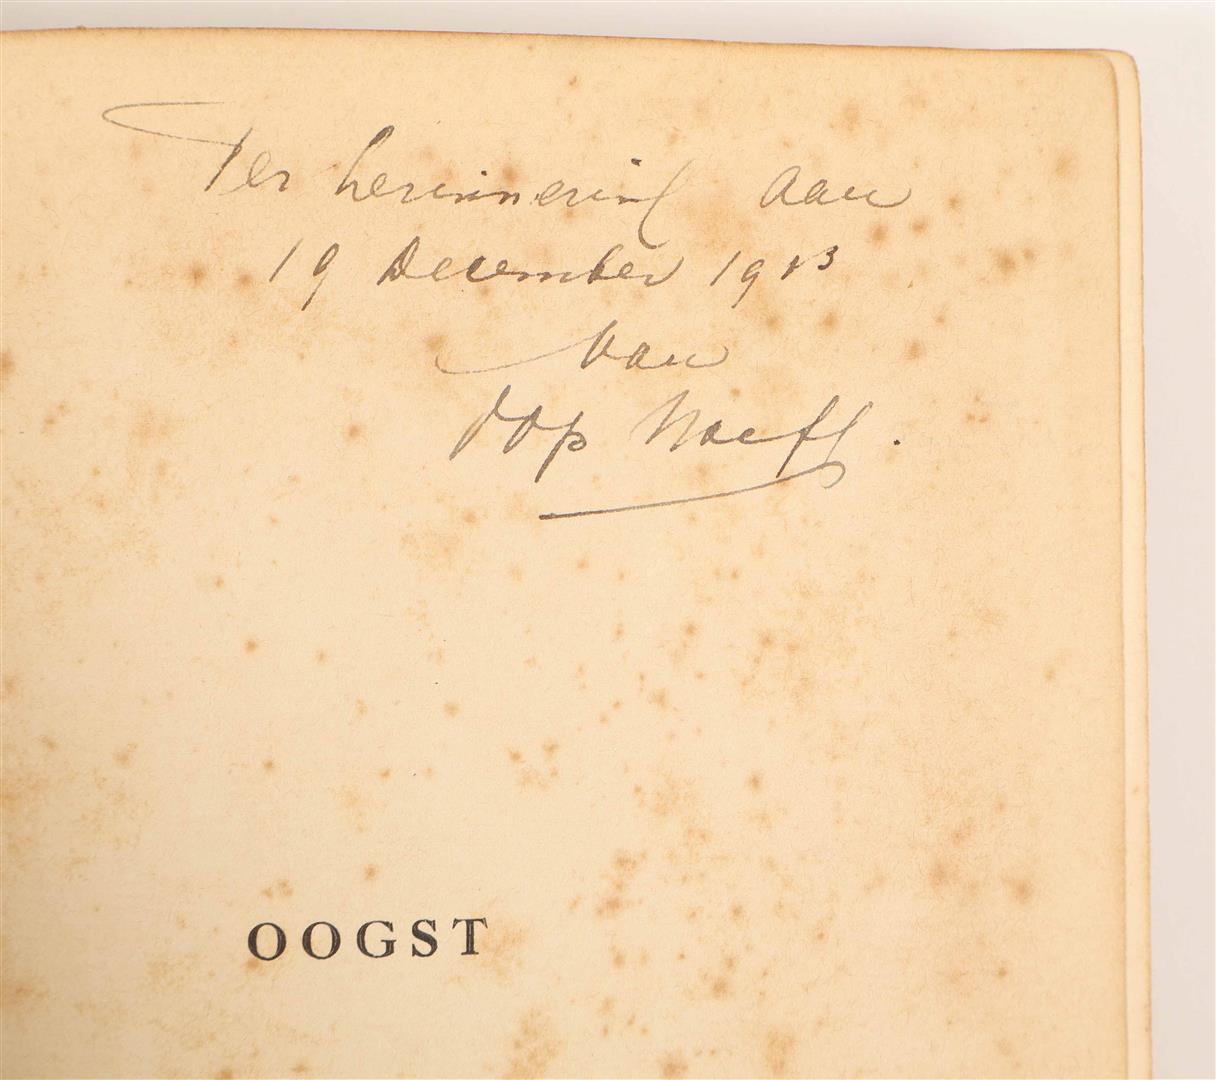 Ter herinnering aan
19 December 1913
van
Pop Naeff.
OOGST